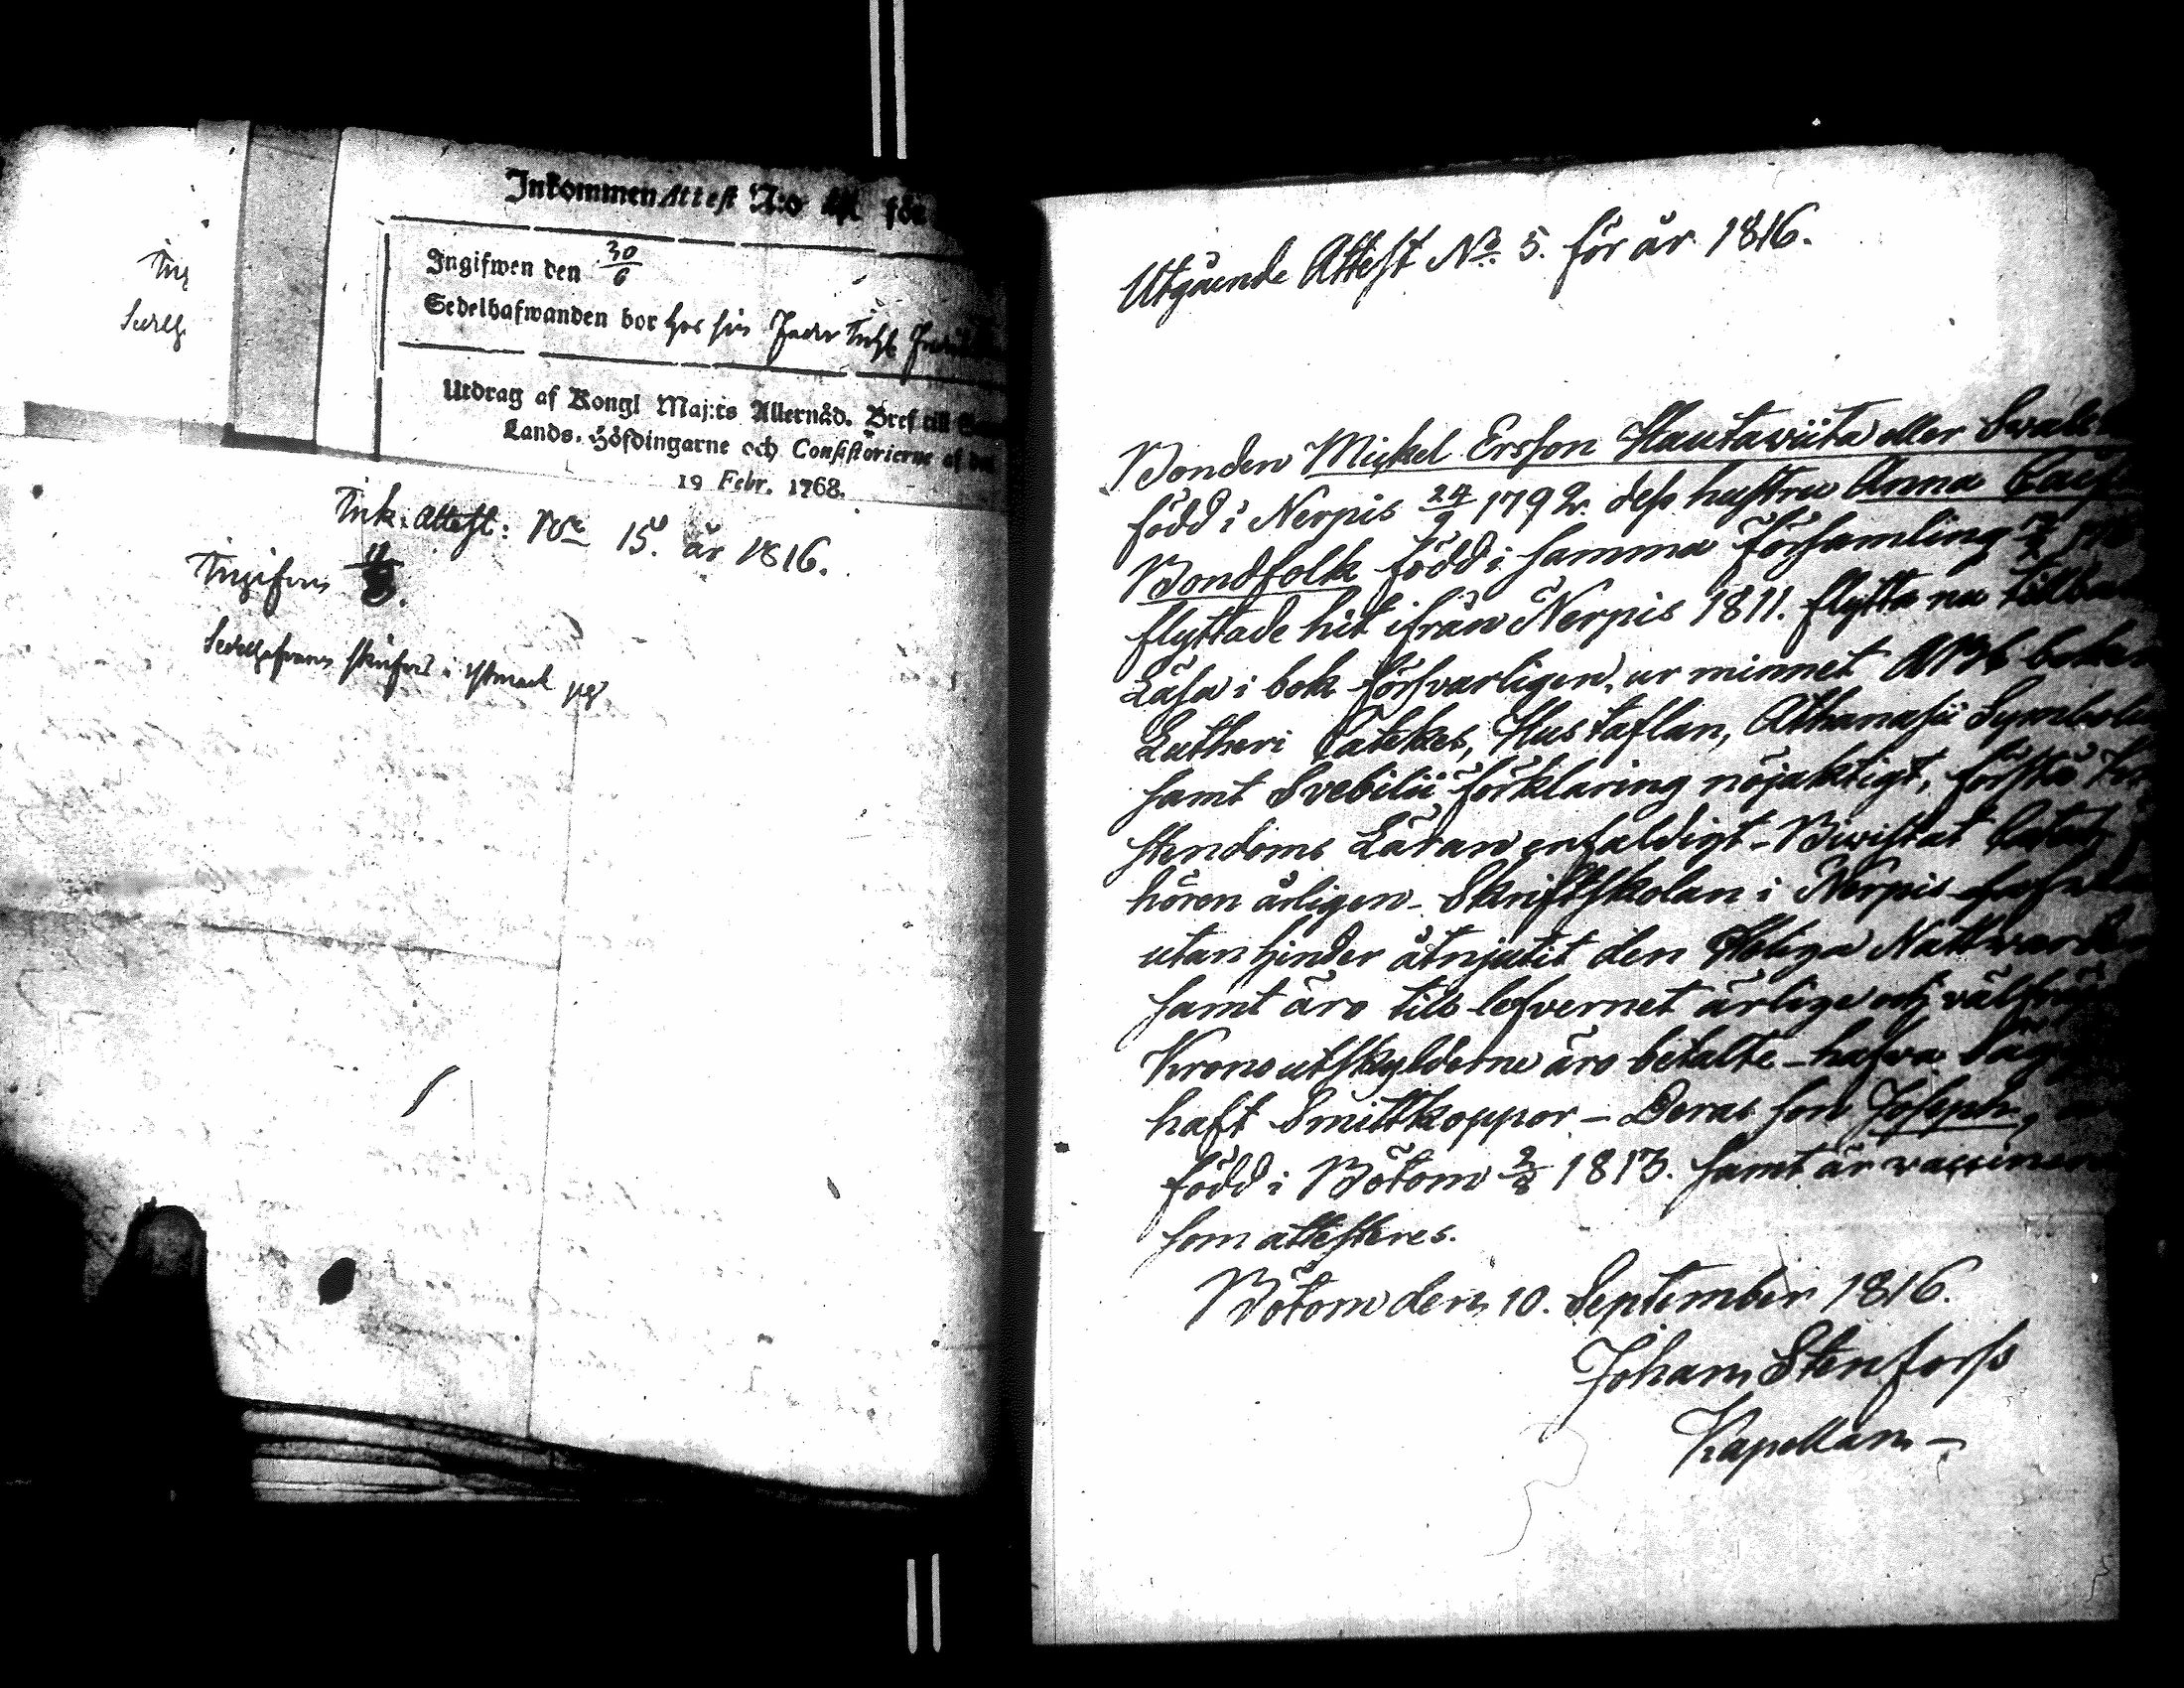 Ing
Sedelh
Inkommen Attest N:o för
Ingifwen den 30/6
Sedelhafwanden bor hos sin
Utdrag af Kongl Maj:ts Allernåd. Bref till
Lands-Höfdingarne och Consistorierne af den
19 Febr. 1768.
Ink. Attest: No 15. år 1816.
Ingifven
Sedelhafvaren i
Utgående Attest No. 5. för år 1816.
Bonden Mickel Ersson Hautawiita eller
född i Nerpis 24/9 1792. dess hustru Anna
Bondfolk född i samma församling
flyttade hit ifrån Nerpis 1811. flytta nu tillbaka
Läsa i bok försvarligen, ur minnet ABC boken
Lutheri Catekes, Hustaflan, Athanasii Symbolum
samt Svebilii förklaring nöjaktigt, förstå
stendoms Läran enfaldigt - Biwistat
hören årligen - Skriftskolan i Nerpis
utan hinder åtnjutit den Heliga Nattvarden
samt äro till lefvernet ärlige och välfräjdade
Kronoutskylderne äro betalte - hafva
haft Smittkoppor - Deras son Joseph,
född i Bötom 2/3 1813. samt är vaccinerad
som attesteres.
Bötom den 10. September 1816.
Johan Stenforss
Kapellan -